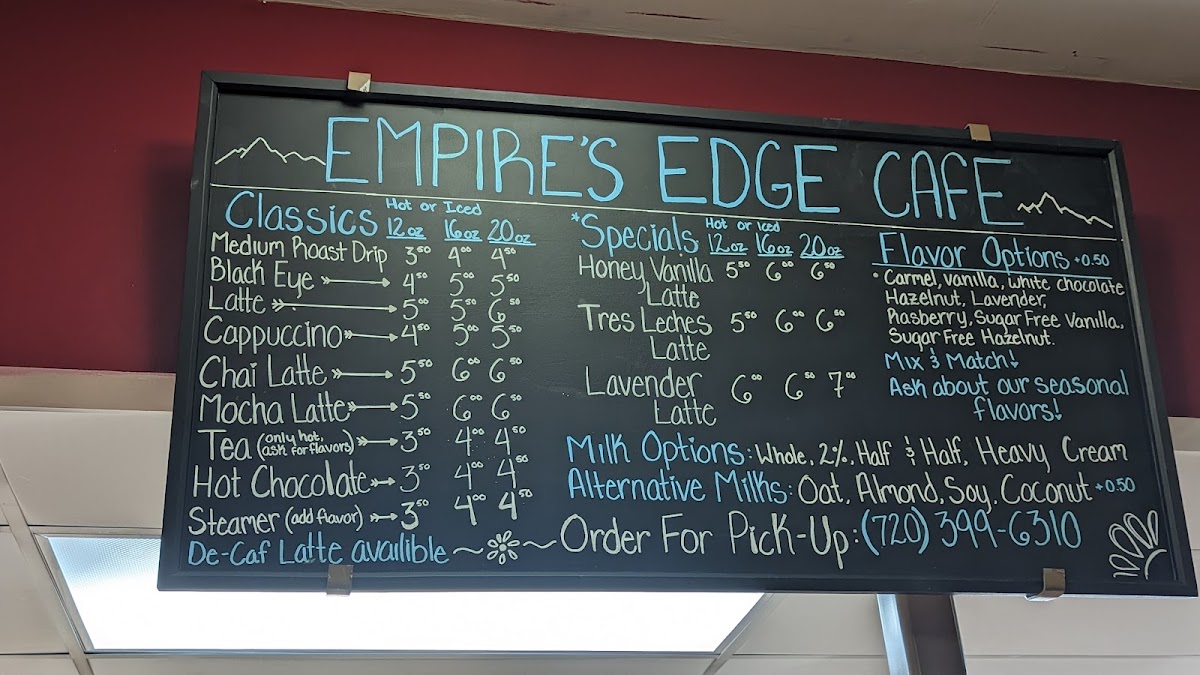 EMPIRE'S EDGE CAFE
Classics Hot or Iced
12oz 16oz 20oz
Medium Roast Drip 3.50 4.00 4.50
Black Eye 4.50 5.00 5.50
Latte 5.00 5.50 6.50
Cappuccino 4.50 5.00 5.50
Chai Latte 5.50 6.00 6.50
Mocha Latte 5.50 6.00 6.50
Tea (only hot, ask for flavors) 3.50 4.00 4.50
Hot Chocolate 3.50 4.00 4.50
Steamer (add flavor) 3.50 4.00 4.50
De-Caf Latte availible
*Specials Hot or Iced
12oz 16oz 20oz
Honey Vanilla 5.50 6.00 6.50
Latte
Tres Leches 5.50 6.00 6.50
Latte
Lavender 6.00 6.50 7.00
Latte
Flavor Options +0.50
* Carmel, vanilla, white chocolate
Hazelnut, Lavender,
Rasberry, Sugar Free Vanilla.
Sugar Free Hazelnut.
Mix & Match!
Ask about our seasonal
flavors!
Milk Options: Whole, 2%, Half & Half, Heavy Cream
Alternative Milks: Oat, Almond, Soy, Coconut +0.50
Order For Pick-Up: (720) 399-6310